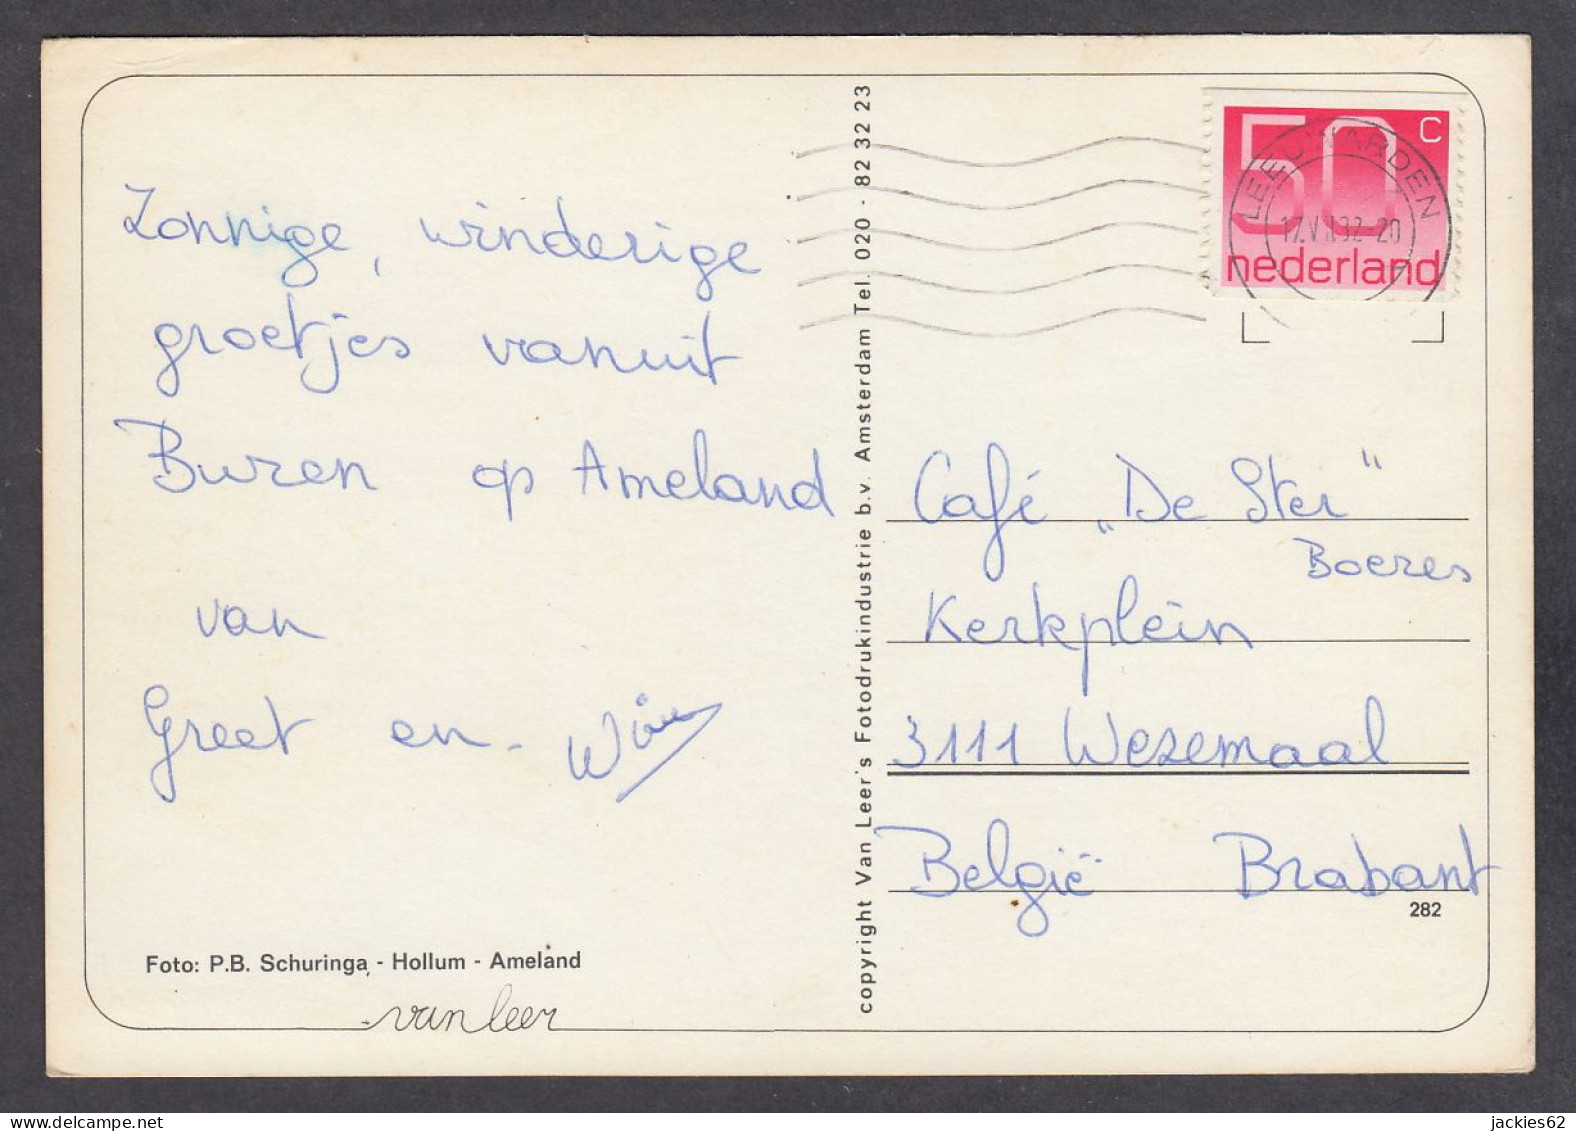 Zonnige, winderige
groetjes vanuit
Buren op Ameland
van
Greet en Wim
Foto: P.B. Schuringa, - Hollum - Ameland
van leer
copyright Van Leer's Fotodrukindustrie b.v. Amsterdam Tel. 020 - 82 32 23
50 C
nederland
LEEUWARDEN
Café „De Ster"
Boeres
Kerkplein
3111 Wezemaal
België Brabant
282
www.delcampe.net
jackies62